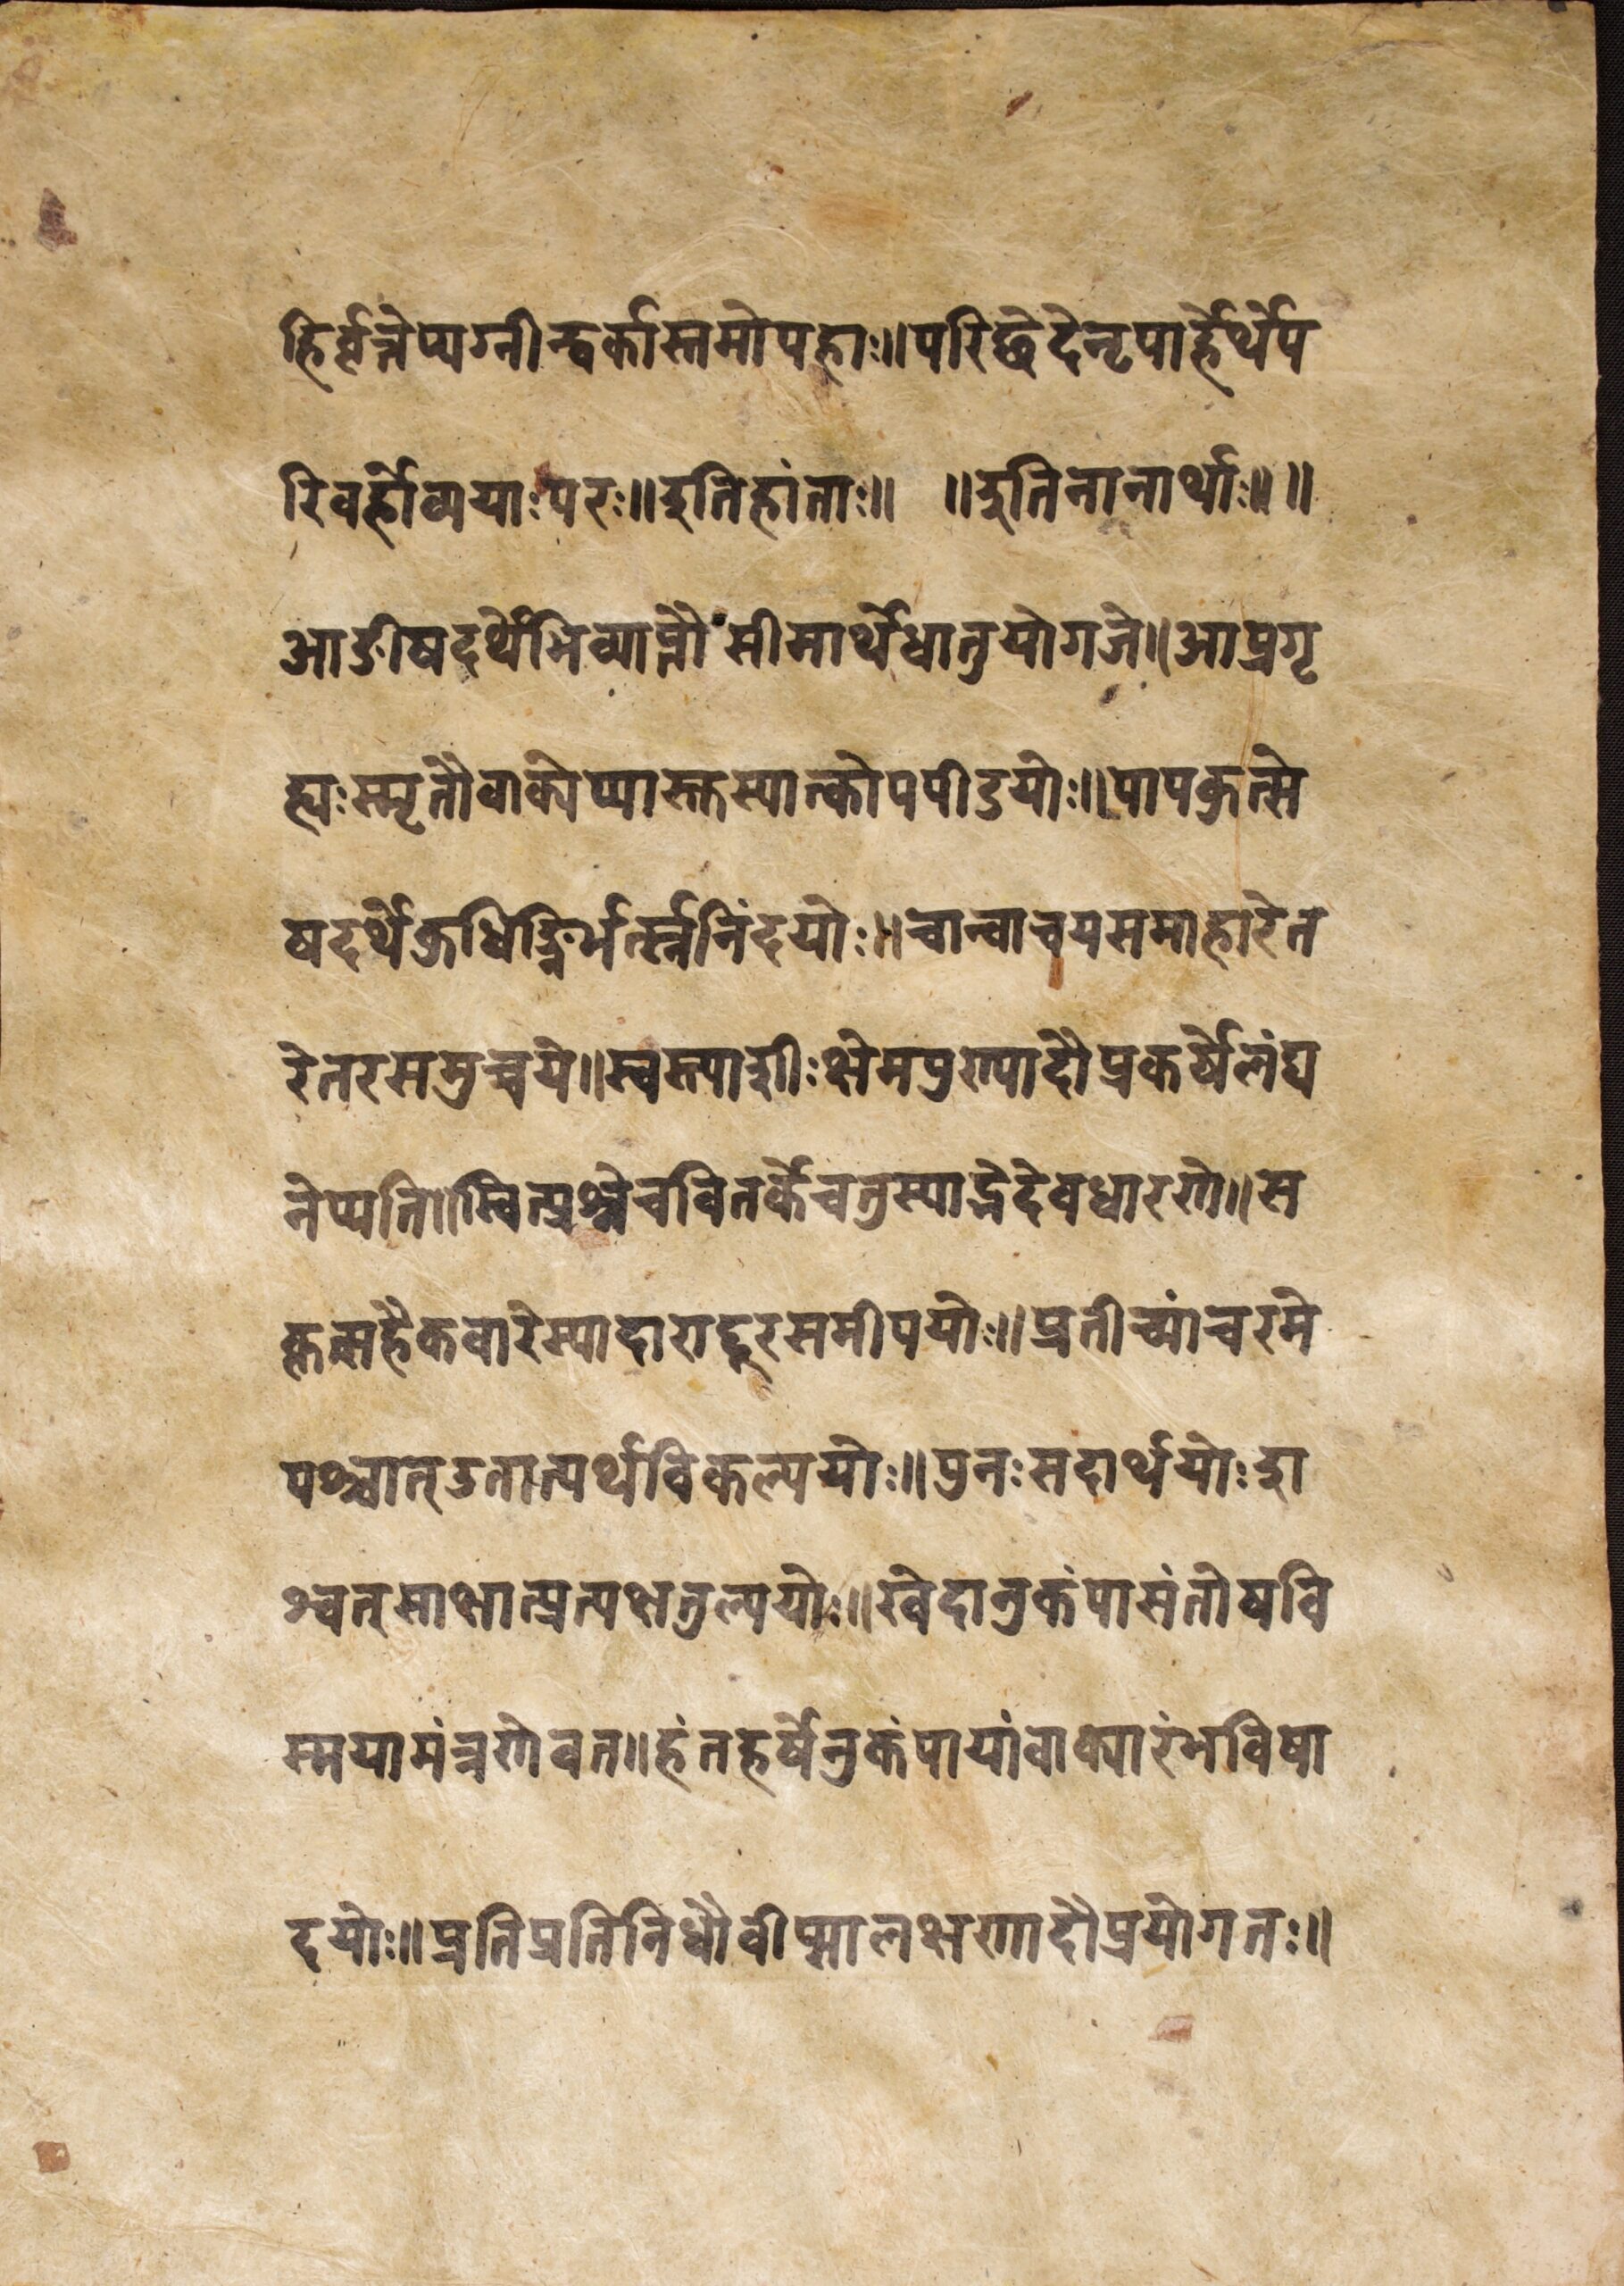 हिर्वृत्रेप्यग्नीन्द्वर्कास्तमोपहाः॥परिछेदेनृपार्हेर्थेप
रिवर्होव्ययाःपरः॥इतिहांताः॥ ॥इतिनानार्थाः॥॥
आङीषदर्थेभिव्याप्तौसीमार्थेधातुयोगजे॥आप्रगृ
ह्यःस्मृतौवाक्येप्यास्तुस्यात्कोपपीडयोः॥पापकुत्से
षदर्थेकुधिङ्निर्भर्त्स्ननिंदयोः॥चान्वाचयसमाहारेत
रेतरसमुच्चये॥स्वस्त्याशीःक्षेमपुण्यादौप्रकर्षेलंघ
नेप्यति॥स्वित्प्रश्नेचवितर्केचतुस्याद्भेदेवधारणे॥स
कृत्सहैकवारेस्यादाराद्दूरसमीपयोः॥प्रतीच्यांचरमे
पश्चात्उतात्यर्थविकल्पयोः॥पुनःसदार्थयोःशा
श्वत्साक्षात्प्रत्यक्षतुल्ययोः॥खेदानुकंपासंतोषवि
स्मयामंत्रणेवत॥हंतहर्षेनुकंपायांवाक्यारंभविषा
दयोः॥प्रतिप्रतिनिधौवीप्सालक्षणादौप्रयोगतः॥